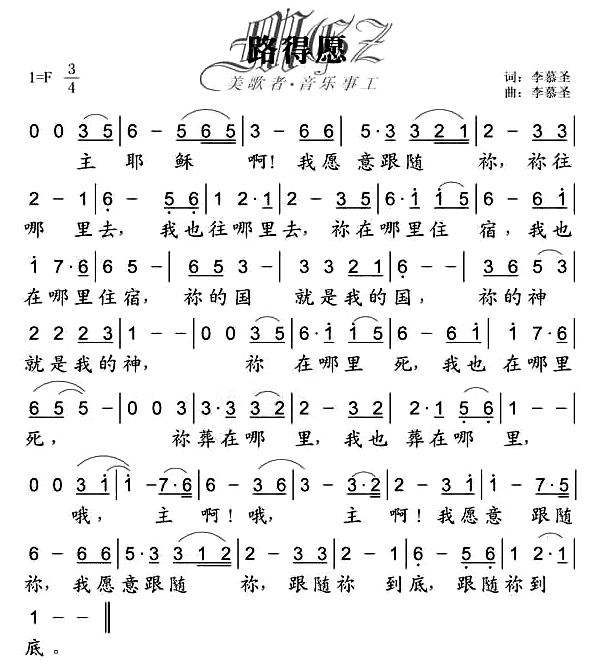 路得愿
美歌者·音乐事工
1=F 3/4
词：李慕圣
曲：李慕圣
0 0 3 5 | 6 - 5 6 5 | 3 - 6 6 | 5 · 3 3 2 1 | 2 - 3 3 |
主 耶 稣 啊！我愿意跟随 祢，祢往
2 - 1 | 6 - 5 6 | 1 2 · 1 | 2 - 3 5 | 6 · i i 6 | 6 - 6 i |
哪 里去，我也往哪里去，祢在哪里住 宿，我也
i 7 · 6 | 6 5 - | 3 5 - | 3 3 2 1 | 6 - - | 3 6 5 3 |
在哪里住宿，祢的国 就是我的国，祢的神
2 2 2 3 | 1 - - | 0 0 3 5 | 6 · i i 5 | 6 - 6 i | i 7 · 6 |
就是我的神，祢 在哪里 死，我也在哪里
6 5 5 - | 0 0 3 | 3 · 3 3 2 | 2 - 3 2 | 1 · 2 5 6 | 1 - - |
死，祢葬在哪 里，我也 葬在哪 里，
0 0 3 i | i - 7 · 6 | 6 - 3 6 | 3 - 3 · 2 | 2 - 3 i | i - 7 · 5 |
哦，主 啊！哦，主 啊！我愿意 跟随
6 - 6 6 | 5 · 3 3 1 2 | 3 - 3 3 | 2 - 1 | 6 - 5 6 | 1 2 · 1 |
祢，我愿意跟随 祢，跟随祢 到底，跟随祢到
1 - - ‖
底。